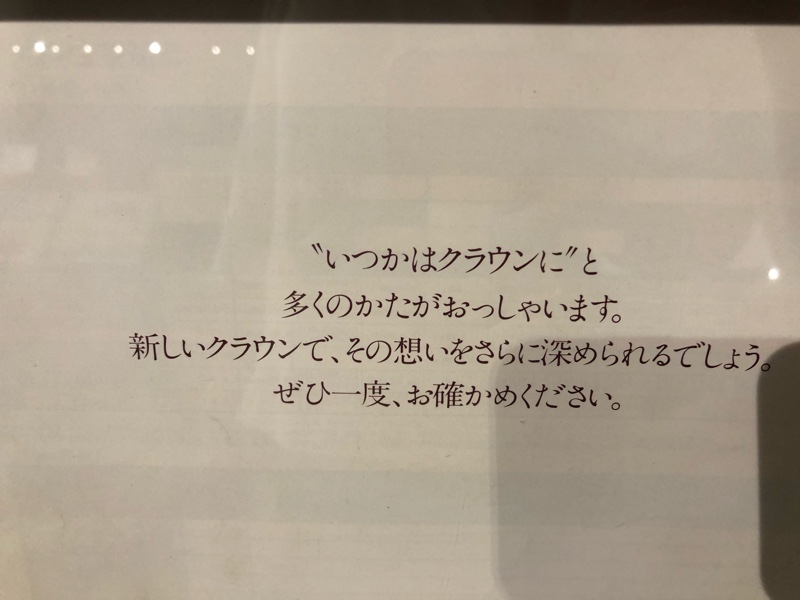 〝いつかはクラウンに〟と
多くのかたがおっしゃいます。
新しいクラウンで、その想いをさらに深められるでしょう。
ぜひ一度、お確かめください。